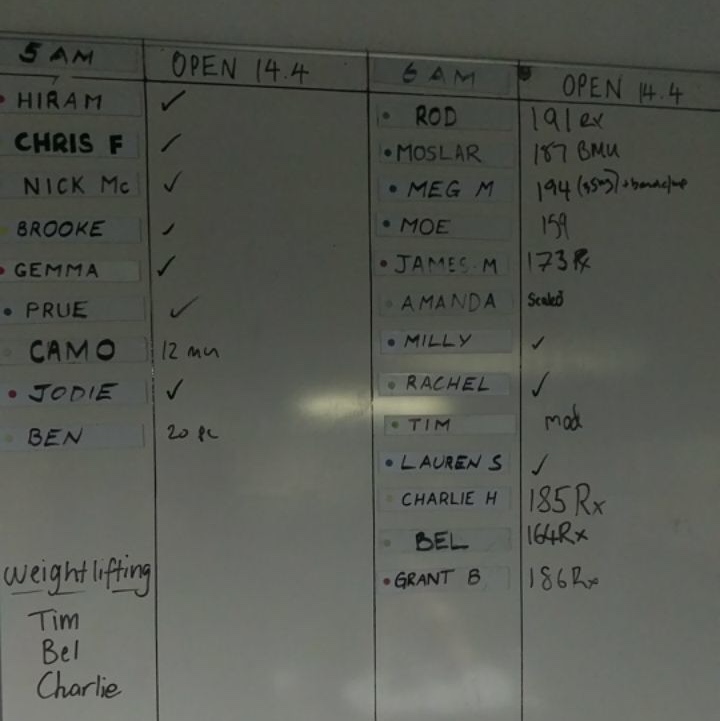 5 AM OPEN 14.4
HIRAM ✓
CHRIS F ✓
NICK Mc ✓
BROOKE ✓
GEMMA ✓
PRUE ✓
CAMO 12 mun
JODIE ✓
BEN
weightlifting
Tim
Bel
Charlie
6 AM OPEN 14.4
ROD 191 Rx
MOSLAR 187 BMU
MEG M 194
MOE 159
JAMES. M 173 Rx
AMANDA Scaled
MILLY ✓
RACHEL ✓
TIM mod
LAUREN S ✓
CHARLIE H 185 Rx
BEL 164 Rx
GRANT B 186 Rx